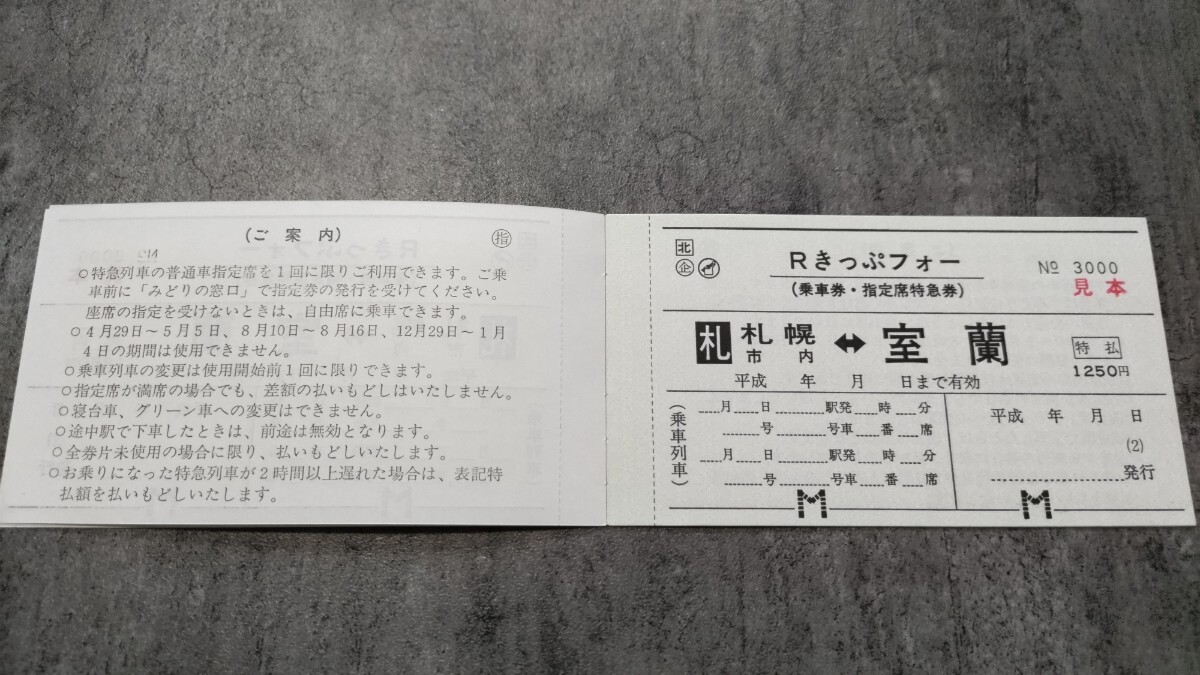 (ご案内)
指
○特急列車の普通車指定席を1回に限りご利用できます。ご乗
車前に「みどりの窓口」で指定券の発行を受けてください。
座席の指定を受けないときは、自由席に乗車できます。
○4月29日～5月5日、8月10日～8月16日、12月29日～1月
4日の期間は使用できません。
○乗車列車の変更は使用開始前1回に限りできます。
○指定席が満席の場合でも、差額の払いもどしはいたしません。
○寝台車、グリーン車への変更はできません。
○途中駅で下車したときは、前途は無効となります。
○全券片未使用の場合に限り、払いもどしいたします。
○お乗りになった特急列車が2時間以上遅れた場合は、表記特
払額を払いもどしいたします。
北
企
Rきっぷフォー
(乗車券・指定席特急券)
№ 3000
見本
札 札幌市内 ↔ 室蘭
特払
1250円
平成 年 月 日まで有効
(乗車列車)
月 日 駅発 時 分
号 号車 番 席
月 日 駅発 時 分
号 号車 番 席
平成 年 月 日
(2)
発行
M M